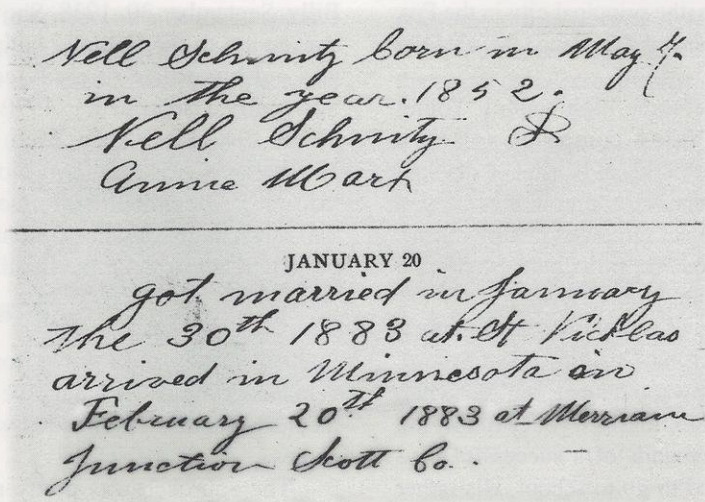 Nell Schmitz born in May 7.
in the year. 1852.
Nell Schmitz &
Annie Marx
JANUARY 20
got married in January
the 30th 1883 at. St Nicklas
arrived in Minnesota on
February 20th 1883 at Merriam
Junction Scott Co.